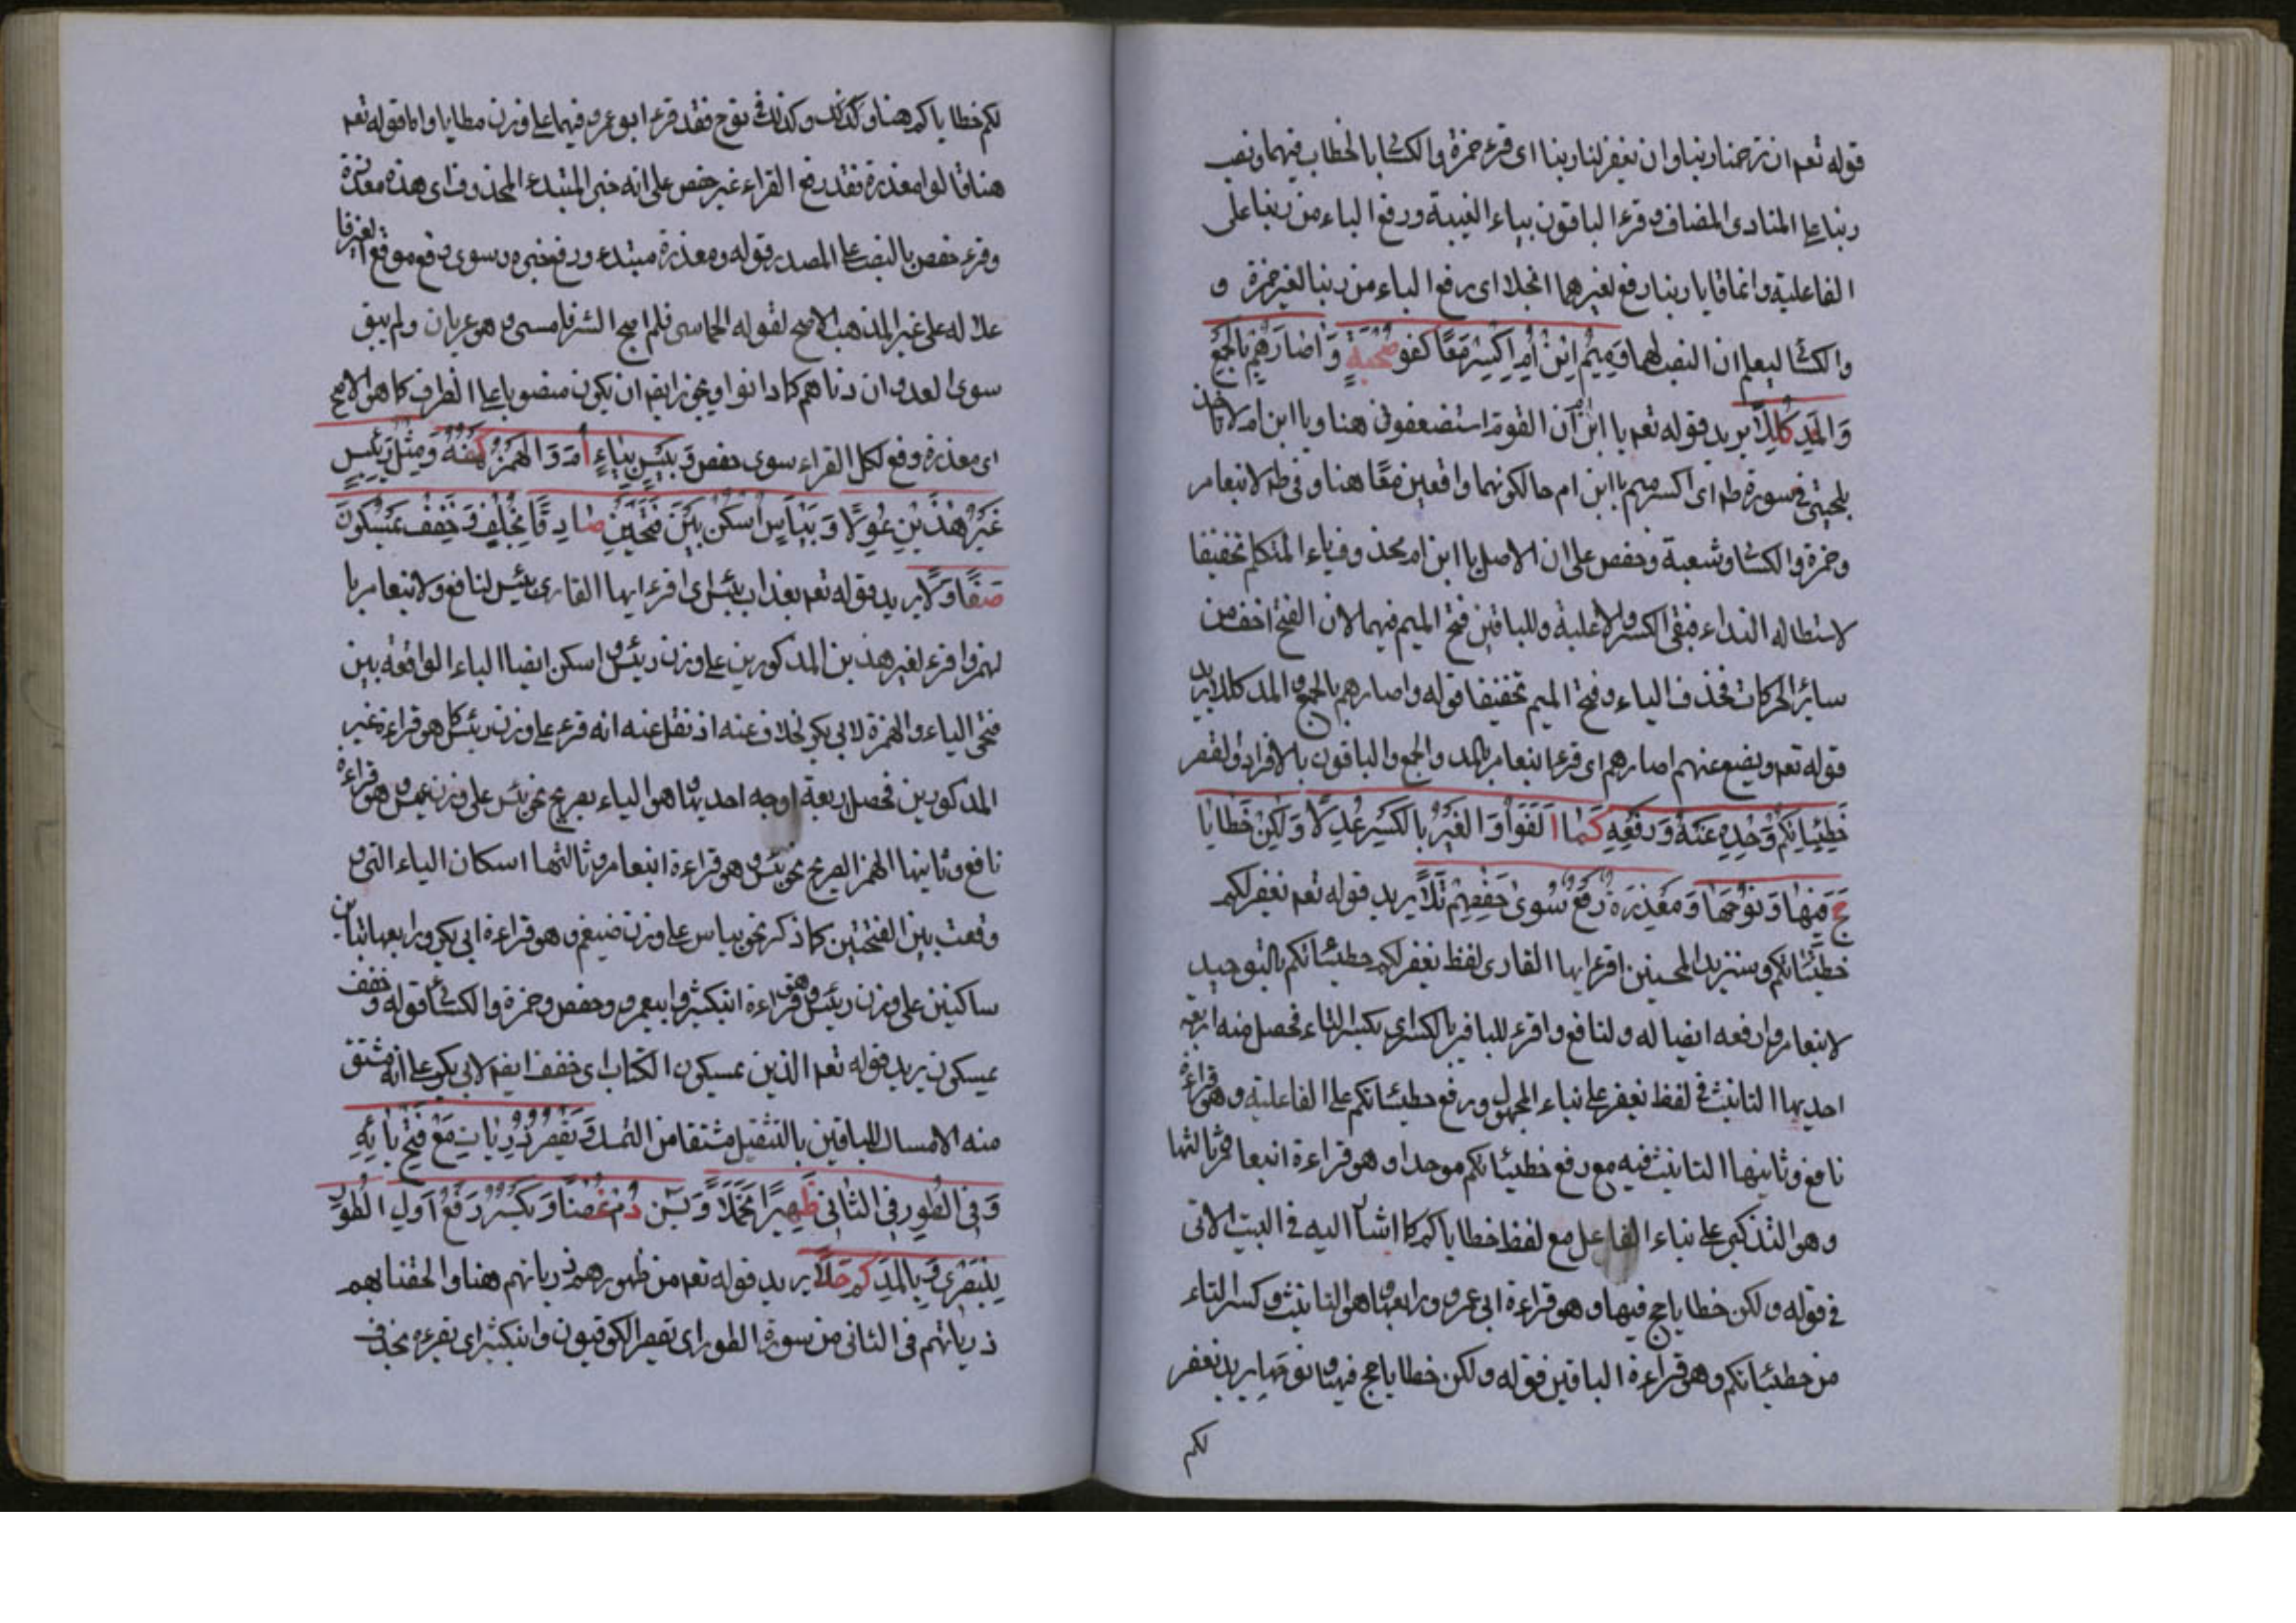 قوله تعه ان ترحمنا ربنا وان نغفر لنا ربنا اى قرء حمزة والكسائى بالخطاب فيهما ونصب
ربنا على المنادى المضاف وقرء الباقون بياء الغيبة ورفع الباء من ربنا على
الفاعلية وانما قال يا ربنا رفع لغيرهما انجلا اى رفع الباء من ربنا لغير حمزة و
والكسائى ليعلم ان النصب لهما وَمِيمُ ابْنَ أُمَّ اكْسِرْ مَعًا كفؤ صُحْبَةٍ وَاٰصَارَهُمْ بِالْجَمْعِ
وَالْمَدِّ كُلِّلَا يريد قوله تعه يا ابن ان القوم استضعفونى هنا ويا ابن ام لا تاخذ
بلحيتى فى سورة طه اى اكسر ميم يا ابن ام حالكونهما واقعين معًا هنا وفى طه لابنعامر
وحمزة والكسائى وشعبة وحفص على ان الاصل يا ابن ام بحذف ياء المتكلم تخفيفا
لاستطالة النداء فبقى الكسر ولاعلية وللباقين فتح الميم فيهما لان الفتح اخف من
سائر الحركات فحذف الياء وفتح الميم تخفيفا قوله واصارهم بالجمع والمد كللا يريد
قوله تعه ويضع عنهم اصارهم اى قرء ابنعامر بالمد والجمع والباقون بالافراد والقصر
خَطِيئَاتِكُمْ وَحِّدْهُ عَنْهُ وَرَفْعُهُ كَمَا اَلَفُوا وَالْغَيْرُ بِالْكَسْرِ عَدَّلَا وَلٰكِنْ خَطَايَا
حَجَّ فِيهَا وَنُوحِهَا وَمَعْذِرَةً رَفْعٌ سِوٰى حَفْصِهِمْ تَلَا يريد قوله تعه نغفر لكم
خطيئاتكم وسنزيد المحسنين اقرء ايها القارى لفظ نغفر لكم خطيئاتكم بالتوحيد
لابنعامر وارفعه ايضا له ولنافع واقرء للباقين بالكسر اى بكسر التاء فحصل منه اربعة
احديها التانيث فى لفظ نغفر على بناء المجهول ورفع خطيئاتكم على الفاعلية وهو قراءة
نافع وثانيها التانيث فيه مع رفع خطيئاتكم موحدا وهو قراءة ابنعامر وثالثها
وهو التذكير على بناء الفاعل مع لفظ خطاياكم كما اشار اليه فى البيت الاتى
فى قوله ولكن خطايا حج فيها وهو قراءة ابى عمرو ورابعها وهو التانيث وكسر التاء
من خطيئاتكم وهو قراءة الباقين قوله ولكن خطايا حج فيها ونوحها يريد نغفر
لكم
لكم خطاياكم هنا وكذلك وكذلك فى نوح فقد قرء ابو عمرو فيهما على وزن مطايا واما قوله تعه
هنا قالوا معذرة فقد رفع القراء غير حفص على انه خبر المبتدء المحذوف اى هذه معذرة
وقرء حفص بالنصب على المصدر قوله ومعذرة مبتدء ورفع خبره وسوى وقع موقع لغير
علا له على غير المذهب الاصح لقوله الحماسى فلما صح الشر فامسى وهو عريان ولم يبق
سوى العدوان دناهم كما دانوا ويجوز ايضا ان يكون منصوبا على الظرف كما هو الاصح
اى معذرة رفع لكل القراء سوى حفص وَبِيسٍ بِيَاءٍ أَمَّ وَالْهَمْزُ كَهْفُهُ وَمِثْلَ رَئِيسٍ
غَيْرُ هٰذَيْنِ عَوَّلَا وَبَيْأَسٍ اسْكِنْ بَيْنَ فَتْحَيْنِ صَادِقًا بِخُلْفٍ وَخَفِّفْ يُمْسِكُونَ
صَفَا وِلَا يريد قوله تعه بعذاب بئيس اى اقرء ايها القارى بئيس لنافع ولابنعامر با
لهمز واقرء لغير هذين المذكورين على وزن رئيس واسكن ايضا الياء الواقعة بين
فتحى الياء والهمزة لابى بكر بخلاف عنه اذ نقل عنه انه قرء على وزن رئيس كما هو قراءة غير
المذكورين فحصل اربعة اوجه احديها وهو الياء بصريح نحو بيس على وزن عيس وهو قراءة
نافع وثانيها الهمز الصريح نحو بئس وهو قراءة ابنعامر وثالثها اسكان الياء التى
وقعت بين الفتحتين كما ذكر نحو بيأس على وزن ضيغم وهو قراءة ابى بكر ورابعها
ساكنين على وزن رئيس وهو قراءة ابنكثير وابيعمرو وحفص وحمزة والكسائى قوله وخفف
يمسكون يريد قوله تعه الذين يمسكون الكتاب اى خفف ايضا لابى بكر على انه مشتق
منه الامساك للباقين بالتثقيل مشتقا من التمسك وَيَقْصُرُ ذُرِّيَّاتِ مَعْ فَتْحِ تَائِهِ
وَفِى الطُّورِ فِى الثَّانِى ظَهِيرٌ تَحَمَّلَا وَيٰسٓ دُمْ غُصْنًا وَيُكْسَرُ رَفْعُ اَوَّلِ الطُّورِ
لِلْبَصْرِى وَبِالْمَدِّ كَمْ حَلَا يريد قوله تعه من ظهورهم ذرياتهم هنا والحقنا بهم
ذرياتهم فى الثانى من سورة الطور اى يقصر الكوفيون وابنكثير اى يقرءه بحذف